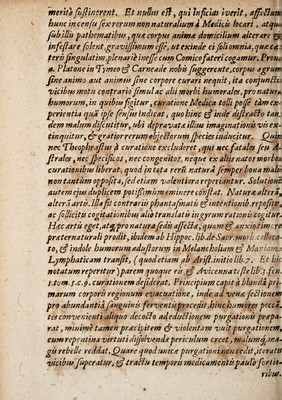 meritò sustinerent. Et nullus est, qui inficias iverit, affectum
hunc in censu sex rerum non naturalium à Medicis locari, atque
subillis pathematibus, quæ corpus animæ domicilium alterare &
infestare solent gravissimum esse, ut exinde ei soli omnia, quæ cæ-
teris singulatim, plenariè inesse cum Comico fateri cogamur. Prout
à Platone in Tymæo & Carneade nobis suggerente, corpus ægrum
sine animo aut animus sine corpore curari nequit, ita conjunctis
vicibus motu contrario simul ac alii morbi humorales, pro natura
humorum, in quibus figitur, curatione Medica tolli posse tàm ex-
perientia quà ipse sensus indicat, quo hinc & inde distracto tan-
dem malum definitur, ubi depravatæ illius imaginationis vis ex-
tinguitur, & gratior rerum objectarum species inducitur.
nec Theophrastus à curatione excluderet, qui nec fatales seu A-
strales, nec specificos, nec congenitos, neque ex aliis natos morbos
curationibus liberat, quod in tota rerū natura semper bona malis
non tantùm opposita, sed etiam valentiora reperiantur. Solutione
autem ejus duplicem potissimùm eminere constat. Naturæ alteram,
alteram artis. Illa fit contrariis phantasmatis & intentionib. repositis,
ac sollicitis cogitationibus aliò translatis in gyrum rationis cogitur.
Hæc artis eget, atq; pro natura sedis affectæ, quam & anxiotimore
præternaturali prodit, ibidem ab Hippoc. lib. de Sacr. morb. colloca-
ta, & indole humorum adustorum in Melancholiam &
Lymphaticam transit, (quod etiam ab Arist. initio lib. 7. Et hic.
notatum repertur) parem quoque ei & Avicennatiste lib. 3. fen.
1. tom. 5. c. 9. curationem desiderat. Principium capit à blandà pri-
marum corporis regionum evacuatione, inde ad venæ sectionem
pro abundantia sanguinis ferventis procedit, hinc humor pecca-
tes convenienti aliquo decocto ad eductionem purgationis præpa-
rat, minimè tamen præcipitem & violentam vult purgationem,
cum repentina virtutis dissolvendæ periculum creet, malumq; ma-
gis rebelle reddat. Quare quod unicæ purgationi non cedit, iteratis
vicibus superatur, & tractu temporis medicamentis paulò fortio-
ribus.